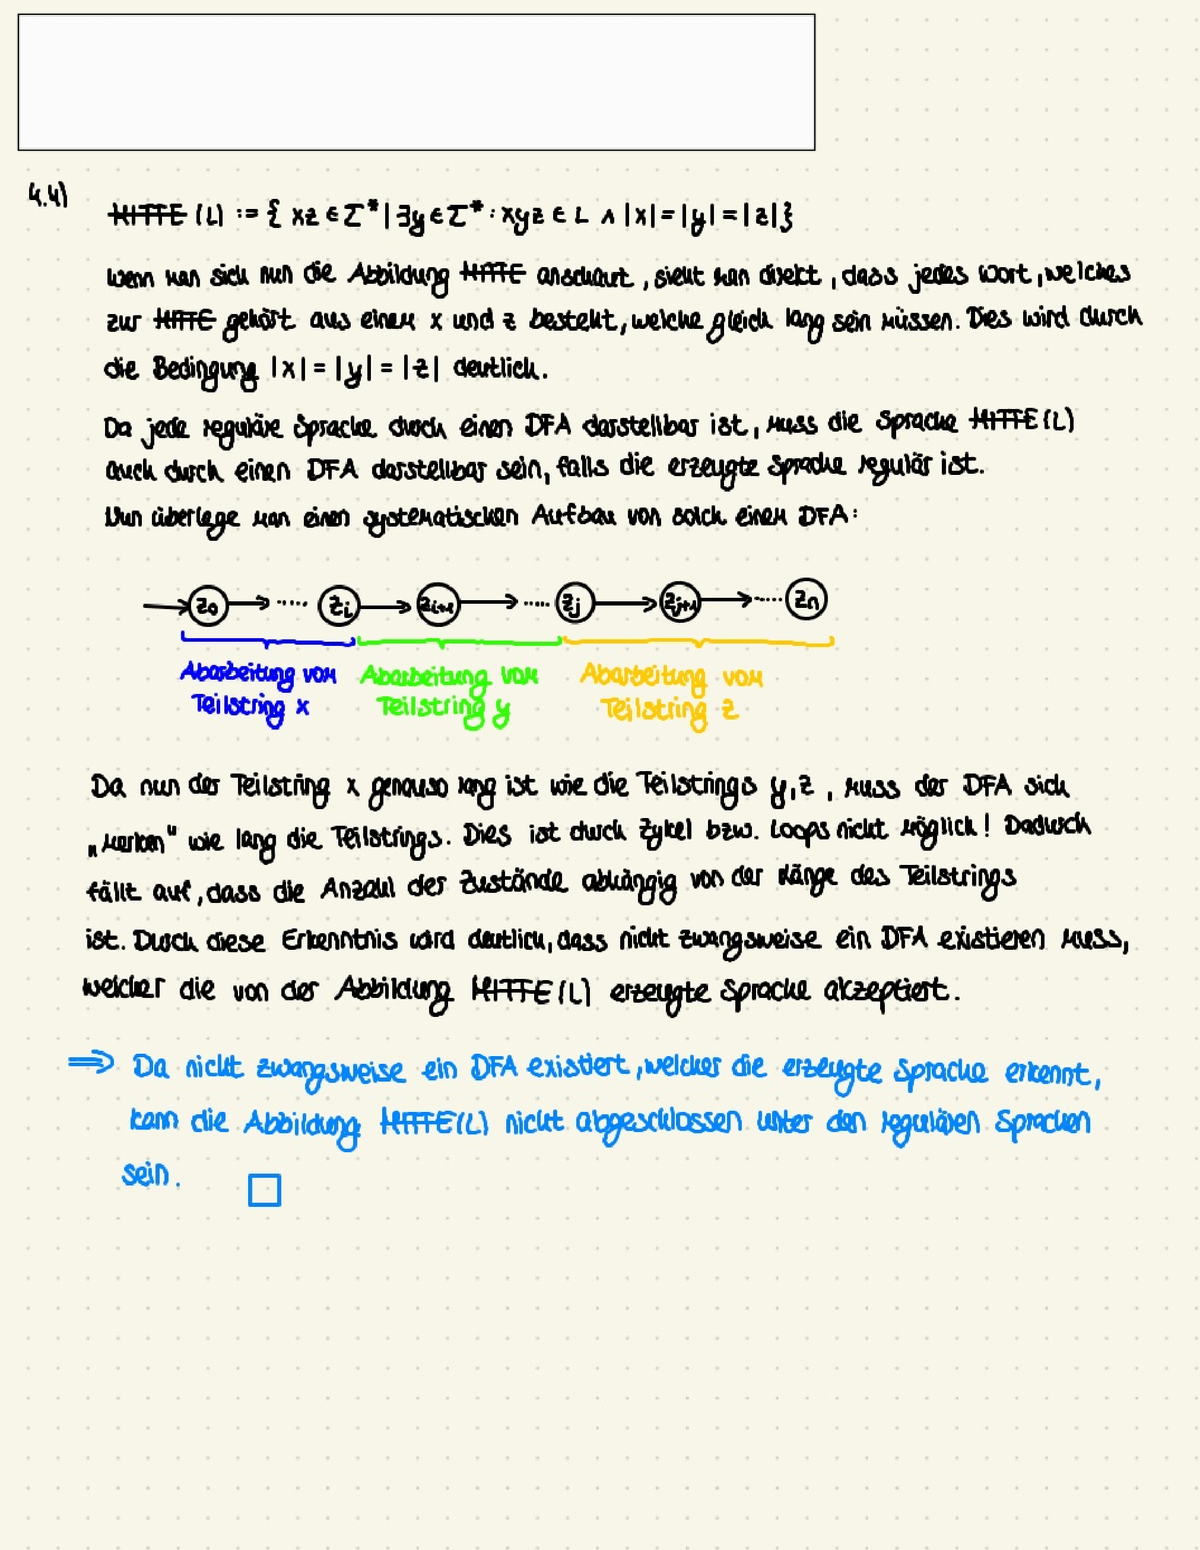 4.4)
M̶I̶T̶T̶E̶ (L) := { xz ∈ Σ* | ∃y ∈ Σ* : xyz ∈ L ∧ |x| = |y| = |z| }
Wenn man sich nun die Abbildung M̶I̶T̶T̶E̶ anschaut, sieht man direkt, dass jedes Wort, welches
zur M̶I̶T̶T̶E̶ gehört aus einem x und z besteht, welche gleich lang sein müssen. Dies wird durch
die Bedingung |x| = |y| = |z| deutlich.
Da jede reguläre Sprache durch einen DFA darstellbar ist, muss die Sprache M̶I̶T̶T̶E̶(L)
auch durch einen DFA darstellbar sein, falls die erzeugte Sprache regulär ist.
Nun überlege man einen systematischen Aufbau von solch einem DFA:
z₀ ..... zᵢ zᵢ₊₁ ..... zⱼ zⱼ₊₁ ..... zₙ
Abarbeitung vom Abarbeitung vom Abarbeitung vom
Teilstring x Teilstring y Teilstring z
Da nun der Teilstring x genauso lang ist wie die Teilstrings y,z, muss der DFA sich
„merken“ wie lang die Teilstrings. Dies ist durch Zykel bzw. Loops nicht möglich! Dadurch
fällt auf, dass die Anzahl der Zustände abhängig von der Länge des Teilstrings
ist. Durch diese Erkenntnis wird deutlich, dass nicht zwangsweise ein DFA existieren muss,
welcher die von der Abbildung M̶I̶T̶T̶E̶(L) erzeugte Sprache akzeptiert.
⇒ Da nicht zwangsweise ein DFA existiert, welcher die erzeugte Sprache erkennt,
kann die Abbildung M̶I̶T̶T̶E̶(L) nicht abgeschlossen unter den regulären Sprachen
sein. □